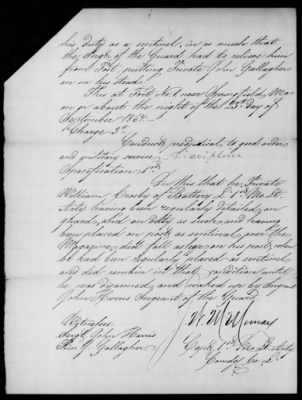 his duty as a sentinel, in as much that
the Sergt of the Guard, had to relieve him
from Post putting Private John Gallagher
on in his stead.
This at Fort No 1 near Springfield, Mo
on or about the night of the 23d day of
September 1864.
Charge 3d
Conduct prejudicial to good order
and military service Discipline
Specification 1st
In this that he, Private
William Crosby of Battery 2d Mo Lt
Arty having been regularly detailed, on
guard, and on duty as such, and having
been placed on post as sentinel, over the
Magazine, did fall asleep on his post, when
he had been regularly placed as sentinel
and did remain in that condition until
he was discovered, and waked up by Sergeant
John Harris Sergeant of the Guard.
Witnesses
Sergt John Harris
Priv J Gallagher
Capt 2d Mo Lt Arty
Comdg Co